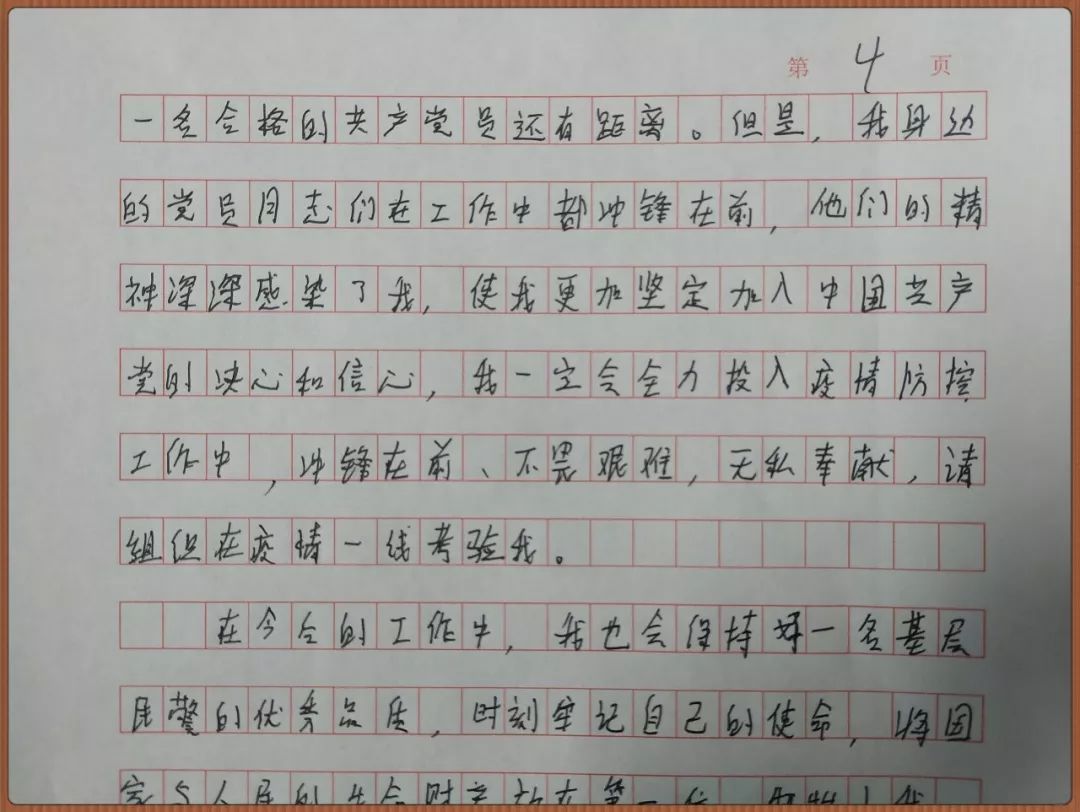 第 4 页
一名合格的共产党员还有距离。但是，我身边
的党员同志们在工作中都冲锋在前，他们的精
神深深感染了我，使我更加坚定加入中国共产
党的决心和信心，我一定会全力投入疫情防控
工作中，冲锋在前、不畏艰难，无私奉献，请
组织在疫情一线考验我。
在今后的工作中，我也会保持好一名基层
民警的优秀品质，时刻牢记自己的使命，将国
家与人民的生命财产放在第一位